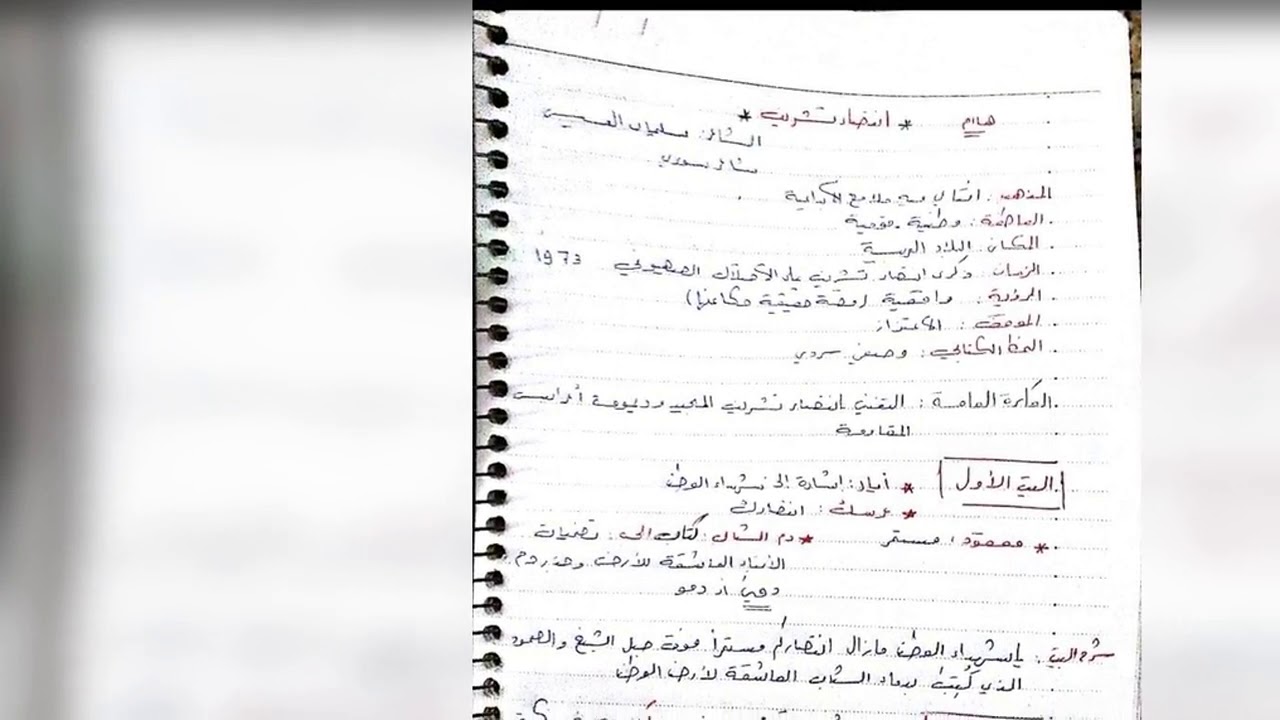 هام * انتصار تشرين *
الشاعر: سليمان العيسى
شاعر سوري
المذهب: اتباعي مع ملامح الإبداعية
العاطفة: وطنية - قومية
المكان: البلاد العربية
الزمان: ذكرى انتصار تشرين على الاحتلال الصهيوني 1973
الرؤية: واقعية (قصة حقيقية
الموقف: الاعتزاز
النمط الكتابي: وصفي سردي
الفكرة العامة: التغني بانتصار تشرين المجيد وديمومة أعراس
المقاومة
البيت الأول * أمجاد: إشارة إلى شهداء الوطن
* عرسك: انتصارك
* معقود: مستمر * دم الشباب: كتاب الى: تضحيات
الأبناء العاشقة للأرض وجذر دم:
دمي أو دمو
شرح البيت: يا شهداء الوطن مازال انتصاركم مستمراً فوق جبل الشيخ والصمود
الذي كتب بدماء الشباب العاشقة لأرض الوطن